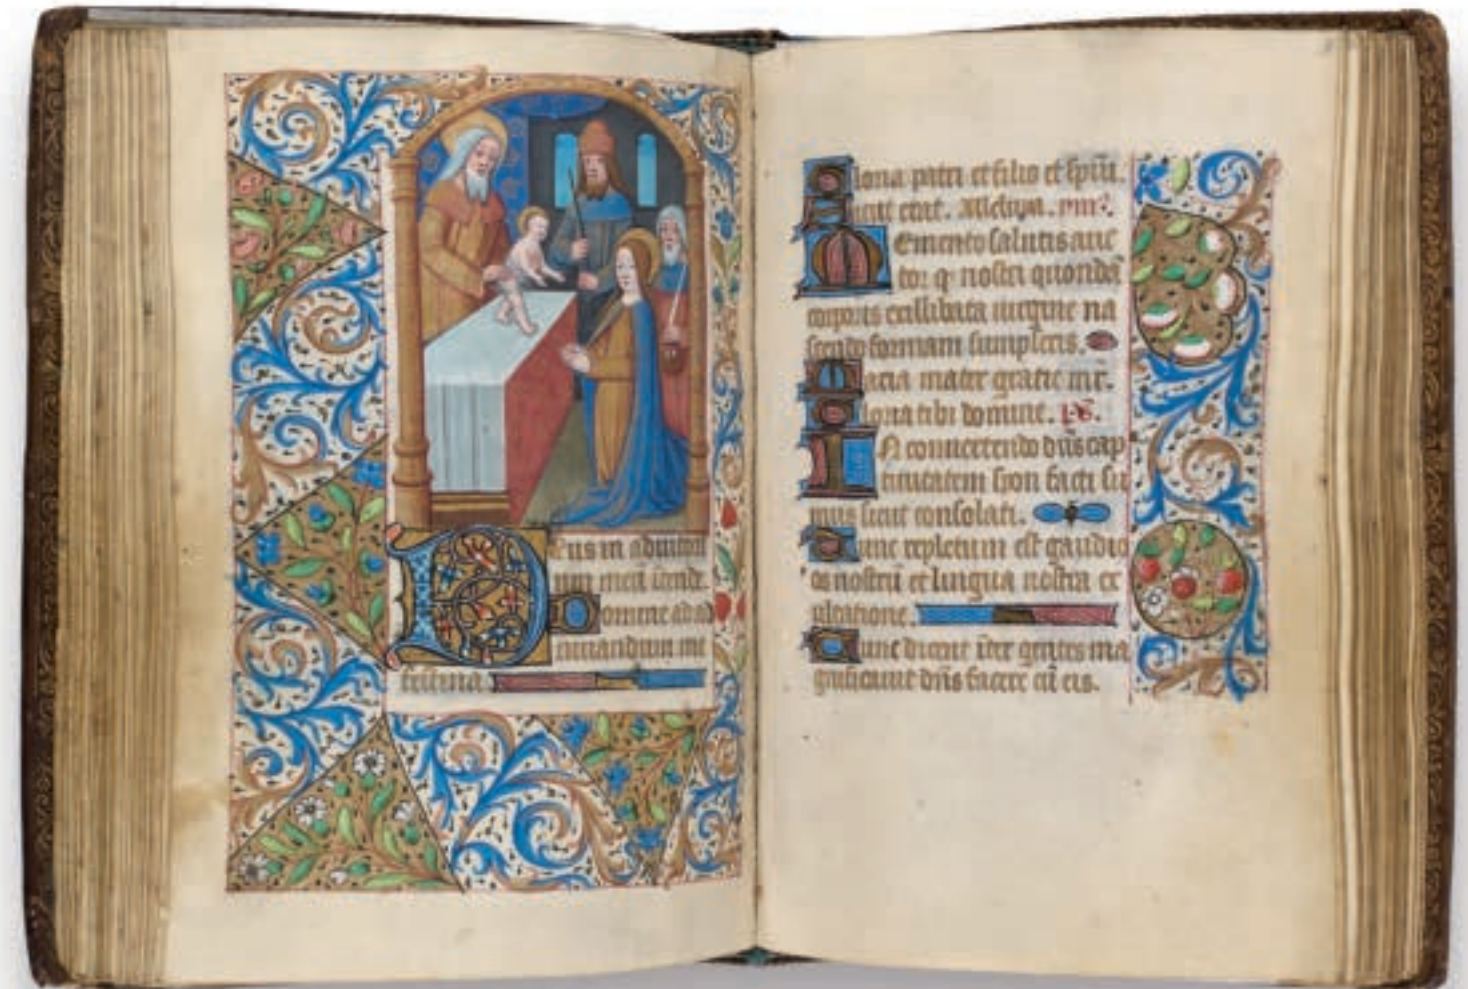 Deus in adiutori
um meū intende.
Domine ad ad
iuuandum me
festina.
Gloria patri et filio et spūi.
Sicut erat. Alleluya.
Memento salutis auc
tor q̄ nostri quondā
corporis exillibata uirgine na
scendo formam sumpseris.
Maria mater gratie mr̄.
Gloria tibi domine. ps̄.
IN conuertendo dn̄s cap
tiuitatem syon facti su
mus sicut consolati.
Tunc repletum est gaudio
os nostrū et lingua nostra ex
ultatione.
Tunc dicent īter gentes ma
gnificauit dn̄s facere cū eis.